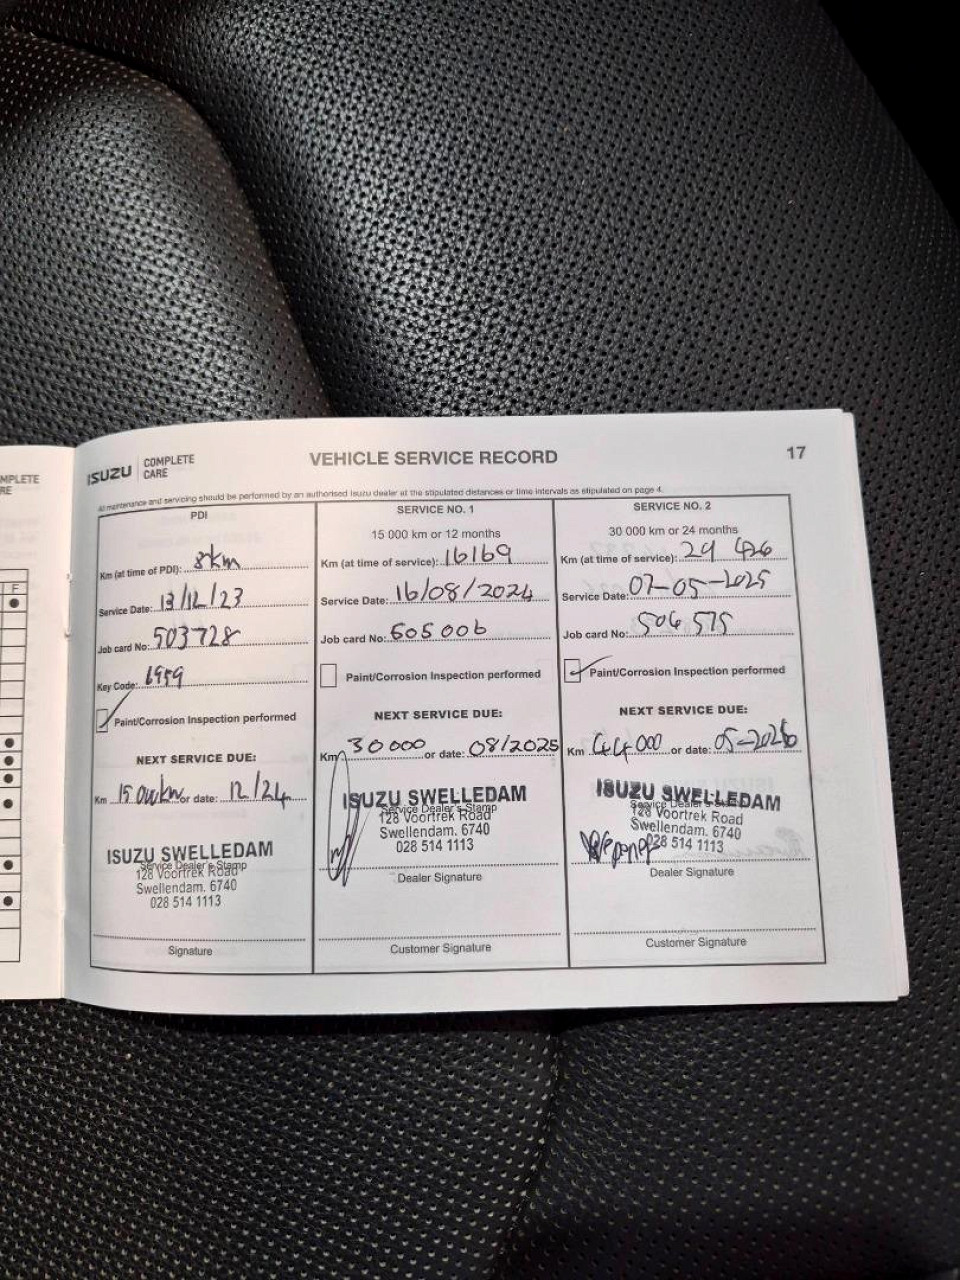 MPLETE
RE
F
ISUZU COMPLETE CARE
VEHICLE SERVICE RECORD
17
All maintenance and servicing should be performed by an authorised Isuzu dealer at the stipulated distances or time intervals as stipulated on page 4.
PDI
Km (at time of PDI): 8km
Service Date: 13/12/23
Job card No: 503728
Key Code: 1959
Paint/Corrosion Inspection performed
NEXT SERVICE DUE:
Km 15 000km or date: 12/24
ISUZU SWELLEDAM
Service Dealer's Stamp
128 Voortrek Road
Swellendam. 6740
028 514 1113
Signature
SERVICE NO. 1
15 000 km or 12 months
Km (at time of service): 16169
Service Date: 16/08/2024
Job card No: 505006
Paint/Corrosion Inspection performed
NEXT SERVICE DUE:
Km 30000 or date: 08/2025
ISUZU SWELLEDAM
Service Dealer's Stamp
128 Voortrek Road
Swellendam. 6740
028 514 1113
Dealer Signature
Customer Signature
SERVICE NO. 2
30 000 km or 24 months
Km (at time of service): 29 426
Service Date: 07-05-2025
Job card No: 506 575
Paint/Corrosion Inspection performed
NEXT SERVICE DUE:
Km 44 000 or date: 05-2026
ISUZU SWELLEDAM
Service Dealer's Stamp
128 Voortrek Road
Swellendam. 6740
028 514 1113
Dealer Signature
Customer Signature